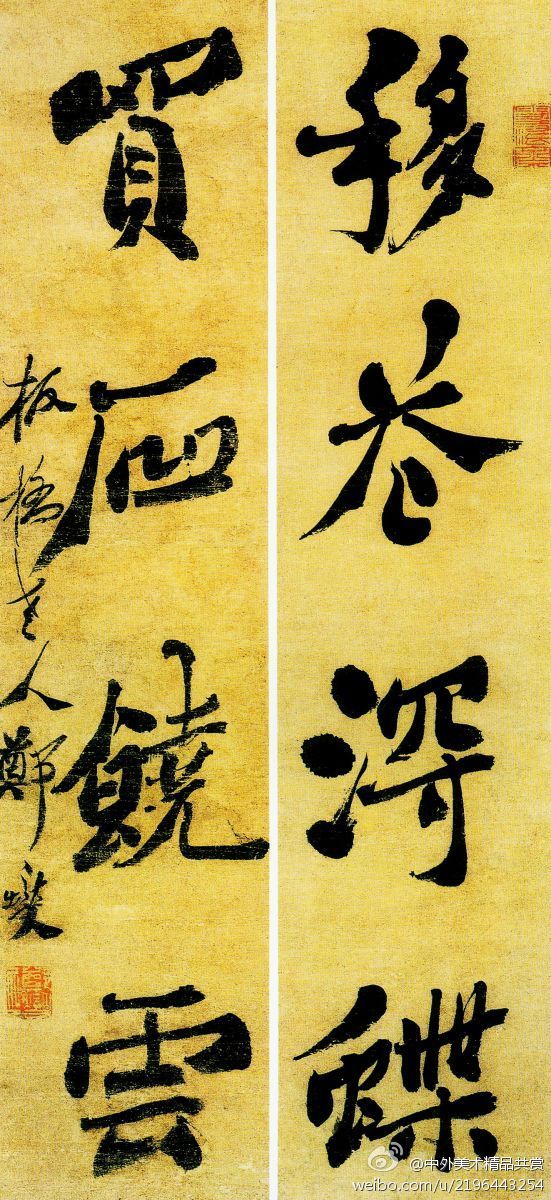 移花淂蝶
買石饒雲
板橋老人鄭燮
@中外美术精品共赏
weibo.com/u/2196443254